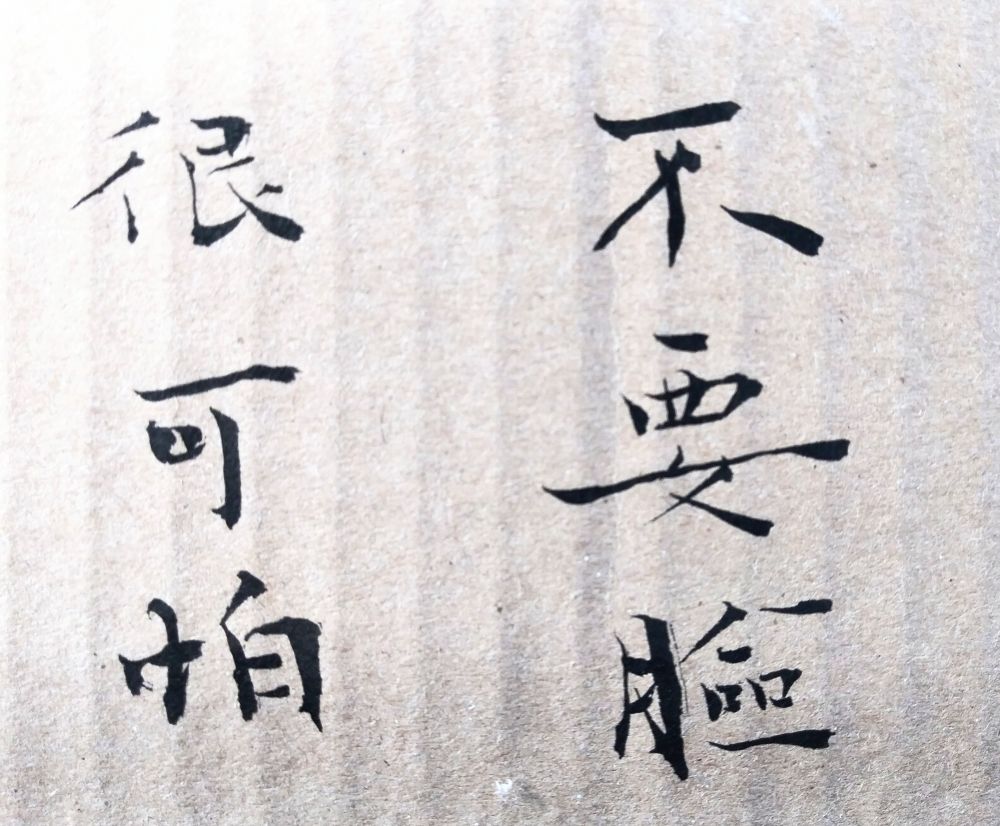 不要臉
很可怕